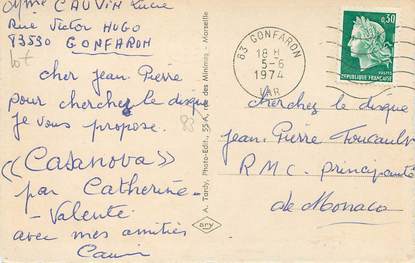 Mme CAUVIN Lucie
Rue Victor HUGO
83590 GONFARON
cher Jean Pierre
pour chercher le disque
je vous propose.
((Casanova))
par Catherine-
Valente
avec mes amitiés
Cauvin
A. Tardy, Photo-Edit., 55-A, rue des Minimes - Marseille
ary
83 GONFARON
18 H
5-6
1974
VAR
0,30
REPUBLIQUE FRANÇAISE
cherchez le disque
Jean Pierre Foucault
R.M.C. principauté
de Monaco